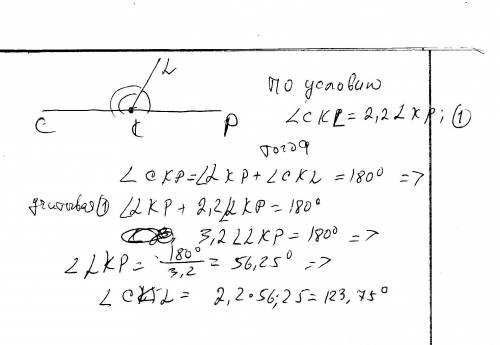 L
C K P
по условию
∠CKL = 2,2∠KP; ①
тогда
∠CKP = ∠LKP + ∠CKL = 180° =>
учитывая ① ∠LKP + 2,2∠LKP = 180°
3,2∠LKP = 180° =>
∠LKP = 180°/3,2 = 56,25° =>
∠CKL = 2,2·56,25 = 123,75°